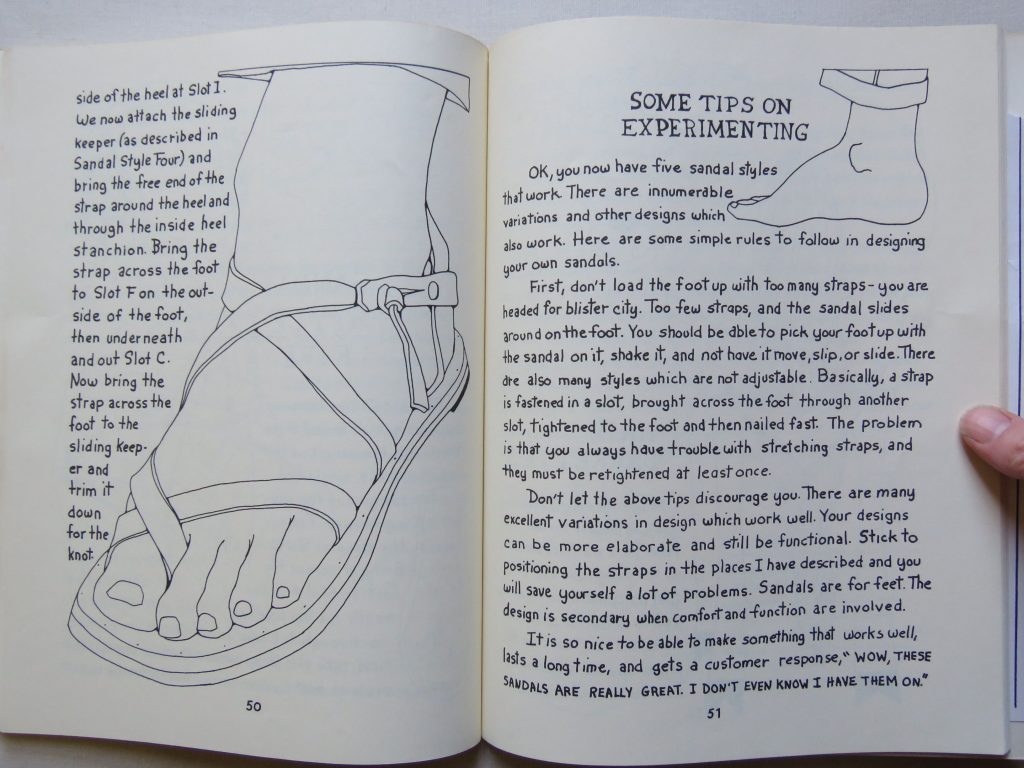 side of the heel at Slot I.
We now attach the sliding
keeper (as described in
Sandal Style Four) and
bring the free end of the
strap around the heel and
through the inside heel
stanchion. Bring the
strap across the foot
to Slot F on the out-
side of the foot,
then underneath
and out Slot C.
Now bring the
strap across the
foot to the
sliding keep-
er and
trim it
down
for the
knot.
50
SOME TIPS ON
EXPERIMENTING
OK, you now have five sandal styles
that work. There are innumerable
variations and other designs which
also work. Here are some simple rules to follow in designing
your own sandals.
First, don't load the foot up with too many straps - you are
headed for blister city. Too few straps, and the sandal slides
around on the foot. You should be able to pick your foot up with
the sandal on it, shake it, and not have it move, slip, or slide. There
are also many styles which are not adjustable. Basically, a strap
is fastened in a slot, brought across the foot through another
slot, tightened to the foot and then nailed fast. The problem
is that you always have trouble with stretching straps, and
they must be retightened at least once.
Don't let the above tips discourage you. There are many
excellent variations in design which work well. Your designs
can be more elaborate and still be functional. Stick to
positioning the straps in the places I have described and you
will save yourself a lot of problems. Sandals are for feet. The
design is secondary when comfort and function are involved.
It is so nice to be able to make something that works well,
lasts a long time, and gets a customer response, "WOW, THESE
SANDALS ARE REALLY GREAT. I DON'T EVEN KNOW I HAVE THEM ON."
51